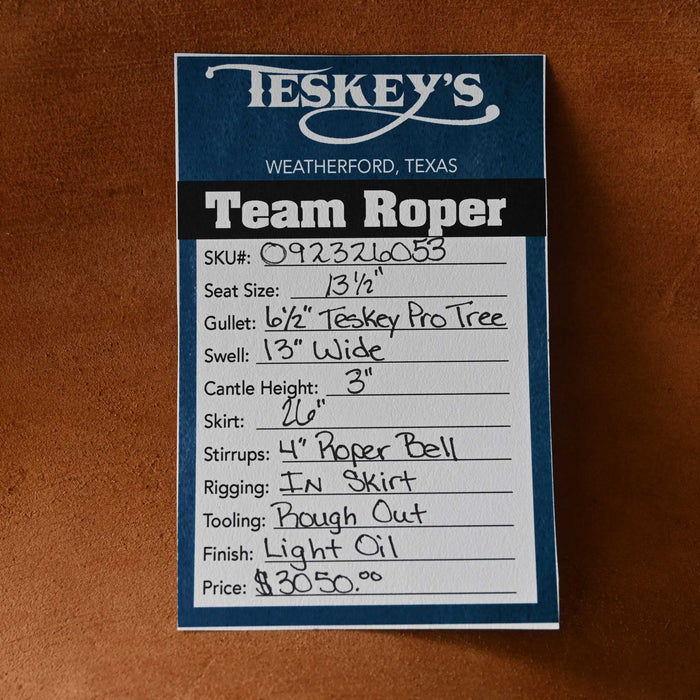 TESKEY'S
WEATHERFORD, TEXAS
Team Roper
SKU#: 092326053
Seat Size: 13 1/2"
Gullet: 6 1/2" Teskey Pro Tree
Swell: 13" Wide
Cantle Height: 3"
Skirt: 26"
Stirrups: 4" Roper Bell
Rigging: IN Skirt
Tooling: Rough Out
Finish: Light Oil
Price: $3050.00